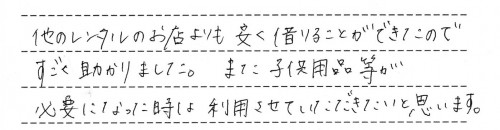 他のレンタルのお店よりも安く借りることができたので
すごく助かりました。また子供用品等が
必要になった時は利用させていただきたいと思います。